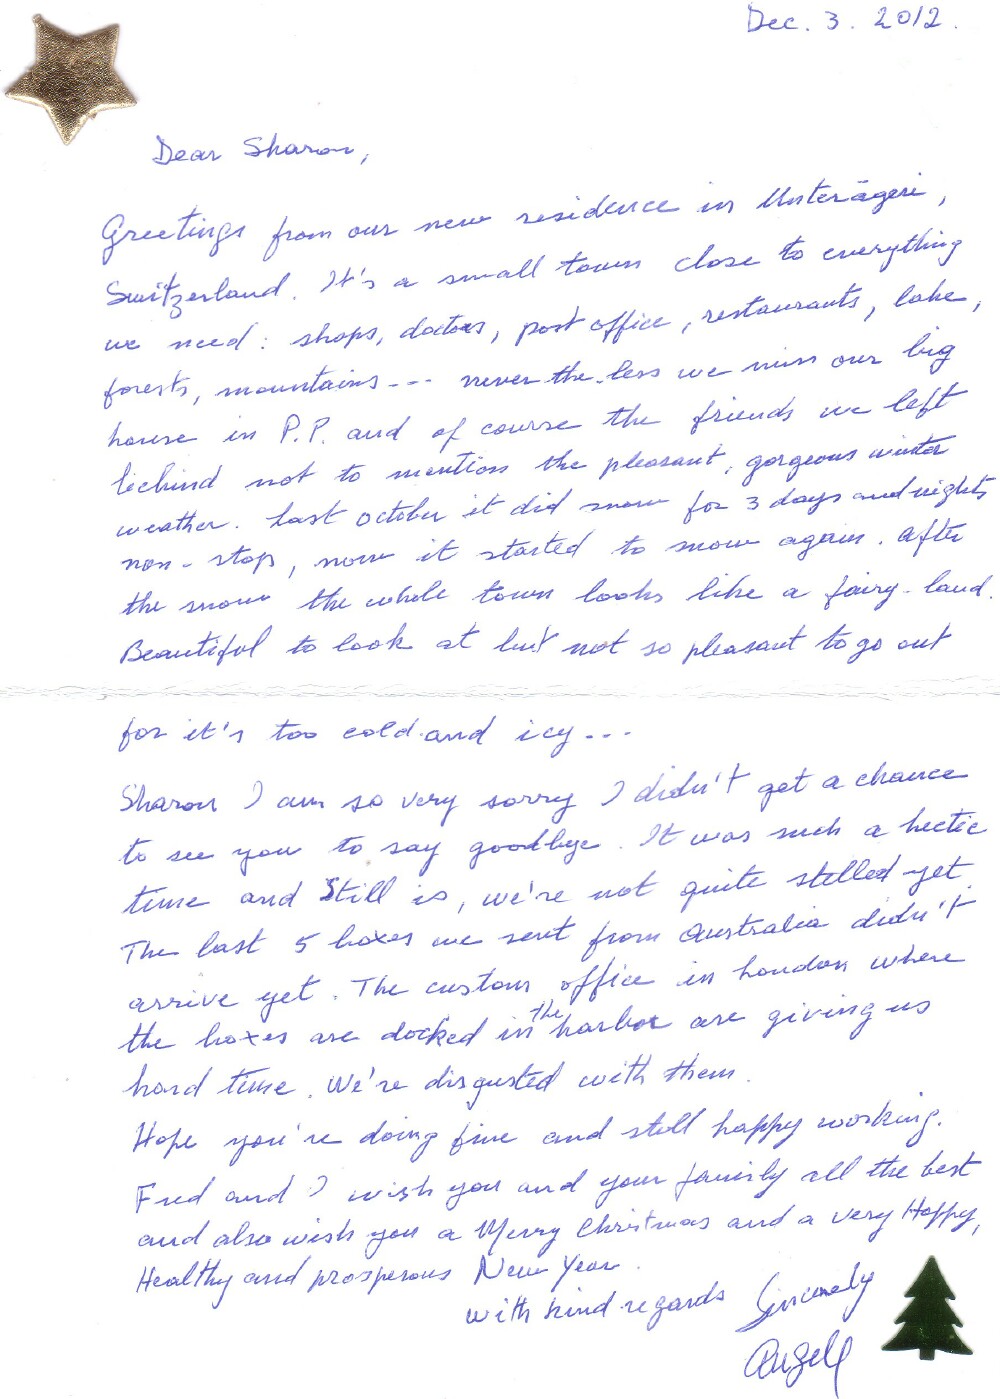 Dec. 3. 2012.
Dear Sharon,
Greetings from our new residence in Unterägeri,
Switzerland. It's a small town close to everything
we need: shops, doctors, post office, restaurants, lake,
forests, mountains --- never the.less we miss our big
house in P.P. and of course the friends we left
behind not to mention the pleasant, gorgeous winter
weather. Last October it did snow for 3 days and nights
non-stop, now it started to snow again. After
the snow the whole town looks like a fairy-land.
Beautiful to look at but not so pleasant to go out
for it's too cold and icy ---
Sharon I am so very sorry I didn't get a chance
to see you to say goodbye. It was such a hectic
time and Still is, we're not quite stelled yet.
The last 5 boxes we sent from Australia didn't
arrive yet. The custom office in London where
the boxes are docked in the harbor are giving us
hard time. We're disgusted with them.
Hope you're doing fine and still happy working.
Fred and I wish you and your family all the best
and also wish you a Merry Christmas and a very Happy,
Healthy and prosperous New Year.
with kind regards Sincerely
Angell